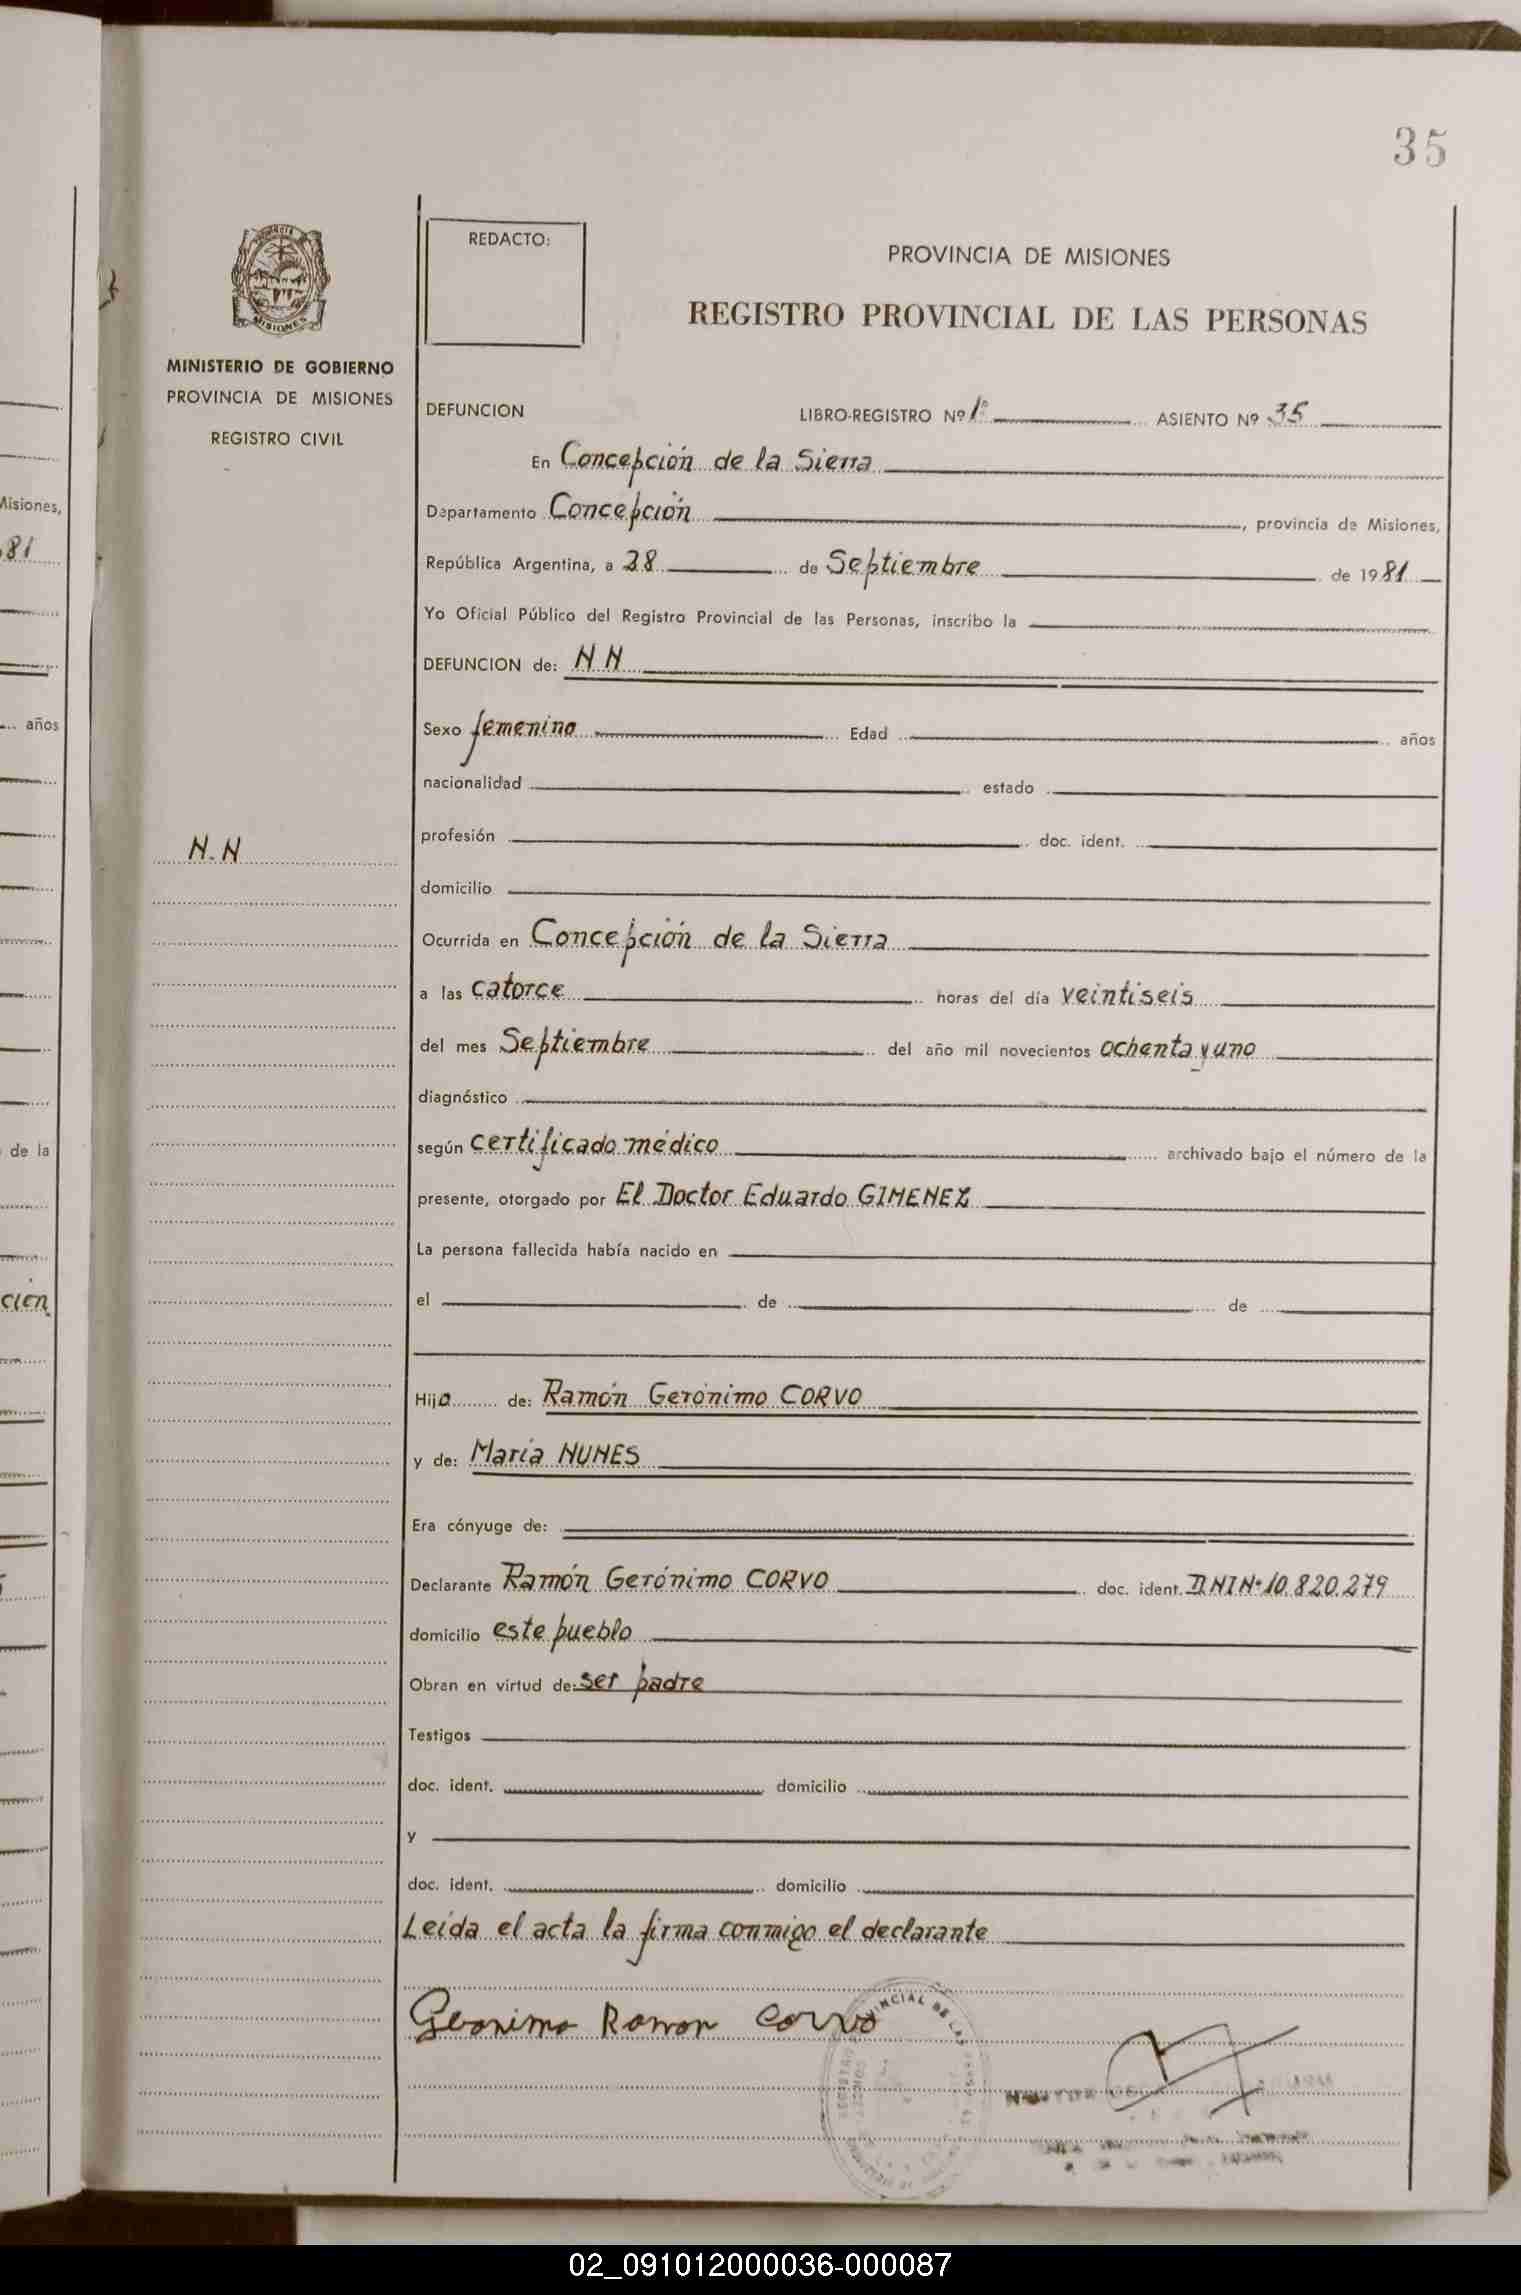 35
PROVINCIA
MISIONES
REDACTO:
PROVINCIA DE MISIONES
REGISTRO PROVINCIAL DE LAS PERSONAS
MINISTERIO DE GOBIERNO
PROVINCIA DE MISIONES
REGISTRO CIVIL
DEFUNCION LIBRO-REGISTRO Nº 1º ASIENTO Nº 35
En Concepción de la Sierra
Departamento Concepción, provincia de Misiones,
República Argentina, a 28 de Septiembre de 1981
Yo Oficial Público del Registro Provincial de las Personas, inscribo la
DEFUNCION de: N N
Sexo femenino Edad años
nacionalidad estado
N.N
profesión doc. ident.
domicilio
Ocurrida en Concepción de la Sierra
a las catorce horas del día veintiseis
del mes Septiembre del año mil novecientos ochenta y uno
diagnóstico
según certificado médico archivado bajo el número de la
presente, otorgado por El Doctor Eduardo GIMENEZ
La persona fallecida había nacido en
el de de
Hija de: Ramón Gerónimo CORVO
y de: María NUNES
Era cónyuge de:
Declarante Ramón Gerónimo CORVO doc. ident. DNI Nº 10.820.279
domicilio este pueblo
Obran en virtud de: ser padre
Testigos
doc. ident. domicilio
y
doc. ident. domicilio
Leida el acta la firma conmigo el declarante
Geronimo Ramon Corvo
Misiones,
81
años
de la
ción
02_091012000036-000087